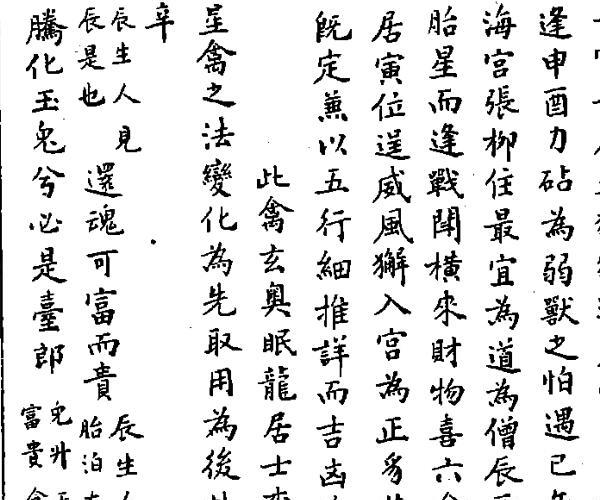 逢申酉力砧為弱獸之怕遇已
海宮張柳住最宜為道為僧辰
胎星而逢戰鬪橫來財物喜六
居寅位逞威風獬入宮為正
既定兼以五行細推詳而吉凶
此禽玄奧眠龍居士
星禽之法變化為先取用為後
辛
辰生人見
辰是也
還魂可富而貴
辰生人
胎泊
騰化玉兔兮必是臺郎
兔升
富貴